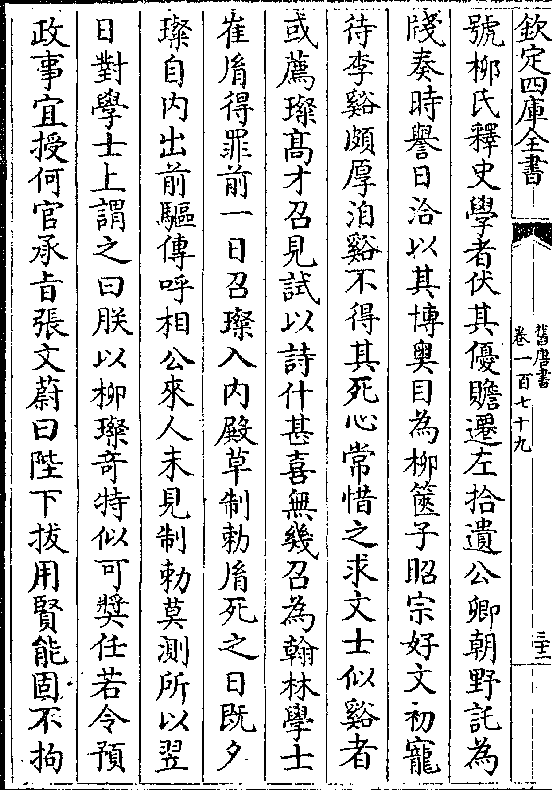 欽定四庫全書
舊唐書
卷一百七十九
三十二
號柳氏釋史學者伏其優贍遷左拾遺公卿朝野託為
牋奏時譽日洽以其博奥目為柳篋子昭宗好文初寵
待李谿頗厚洎谿不得其死心常惜之求文士似谿者
或薦璨高才召見試以詩什甚喜無幾召為翰林學士
崔𦙍得罪前一日召璨入内殿草制勅𦙍死之日既夕
璨自内出前驅傳呼相公來人未見制勅莫測所以翌
日對學士上謂之曰朕以柳璨奇特似可奬任若令預
政事宜授何官承㫖張文蔚曰陛下拔用賢能固不拘